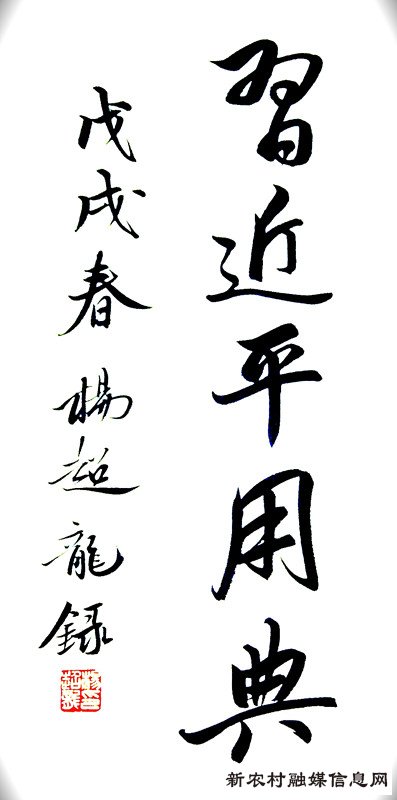 習近平用典
戊戌春楊超龍録
新农村融媒信息网